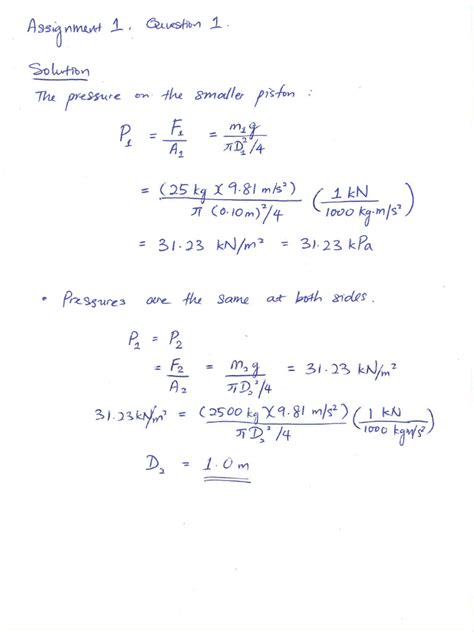 Assignment 1, Question 1.
Solution
The pressure on the smaller piston :
P₁ = F₁/A₁ = m₁g/(πD₁²/4)
= (25 kg)(9.81 m/s²)/(π (0.10m)²/4) (1 kN/1000 kg·m/s²)
= 31.23 kN/m² = 31.23 kPa
• Pressures are the same at both sides.
P₁ = P₂
= F₂/A₂ = m₂g/(πD₂²/4) = 31.23 kN/m²
31.23 kN/m² = (2500 kg)(9.81 m/s²)/(πD₂²/4) (1 kN/1000 kgm/s²)
D₂ = 1.0 m